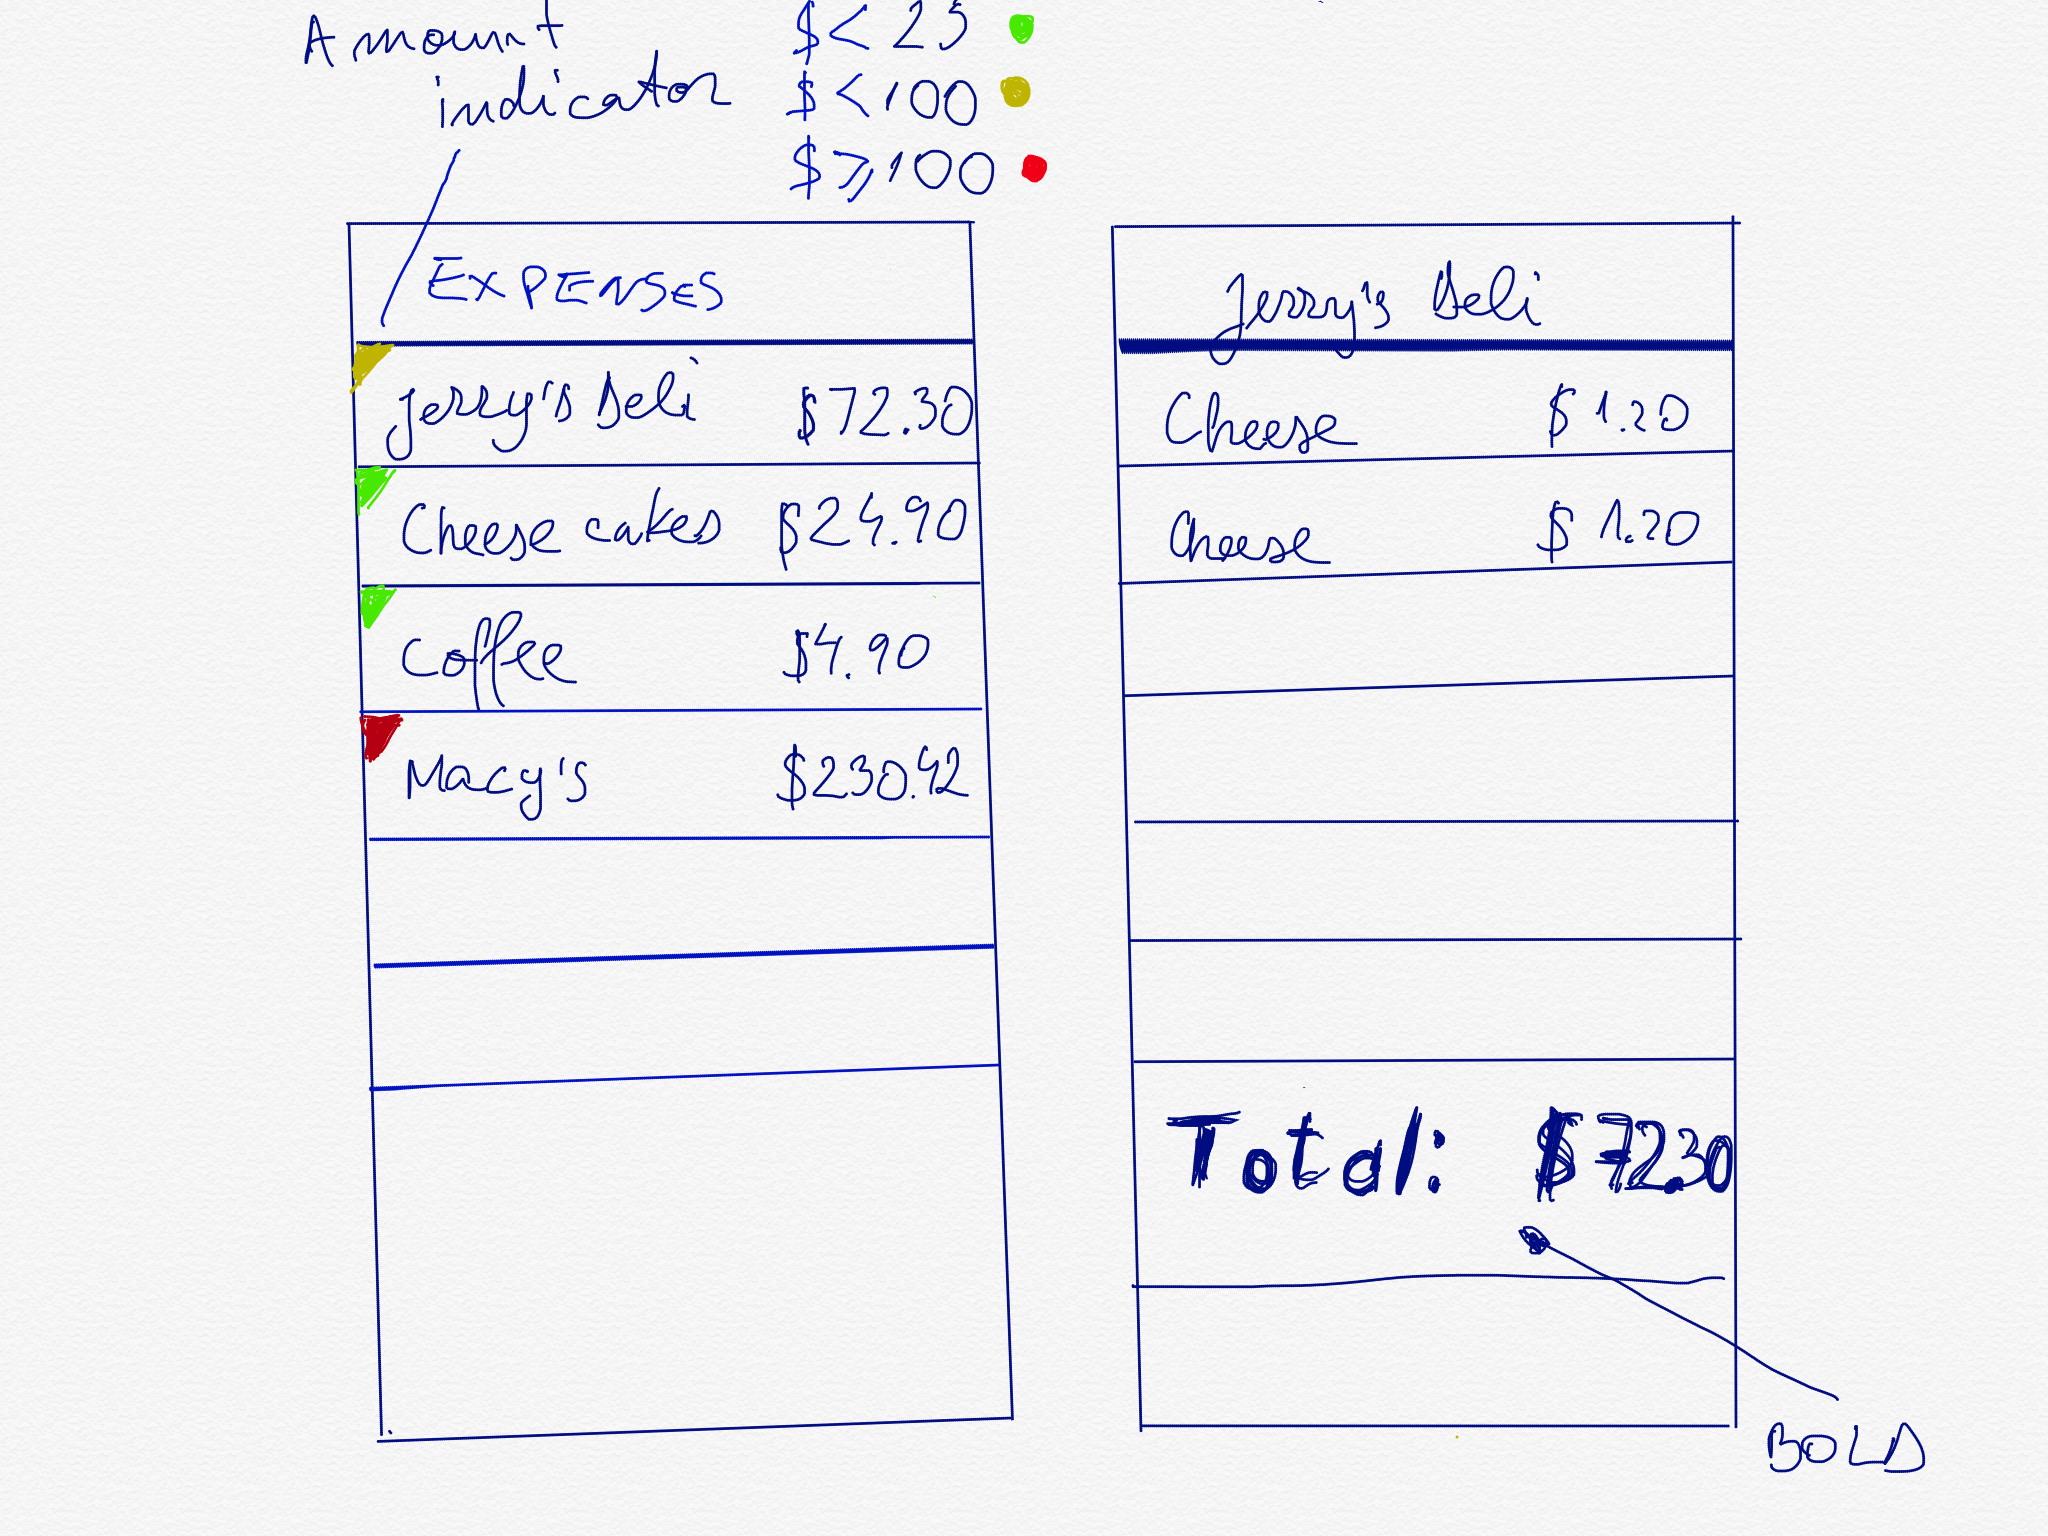 Amount
indicator
$ < 25
$ < 100
$ ⩾ 100
EXPENSES
Jerry's Deli $72.30
Cheese cakes $24.90
Coffee $4.90
Macy's $230.42
Jerry's Deli
Cheese $1.20
Cheese $1.20
Total: $72.30
BOLD